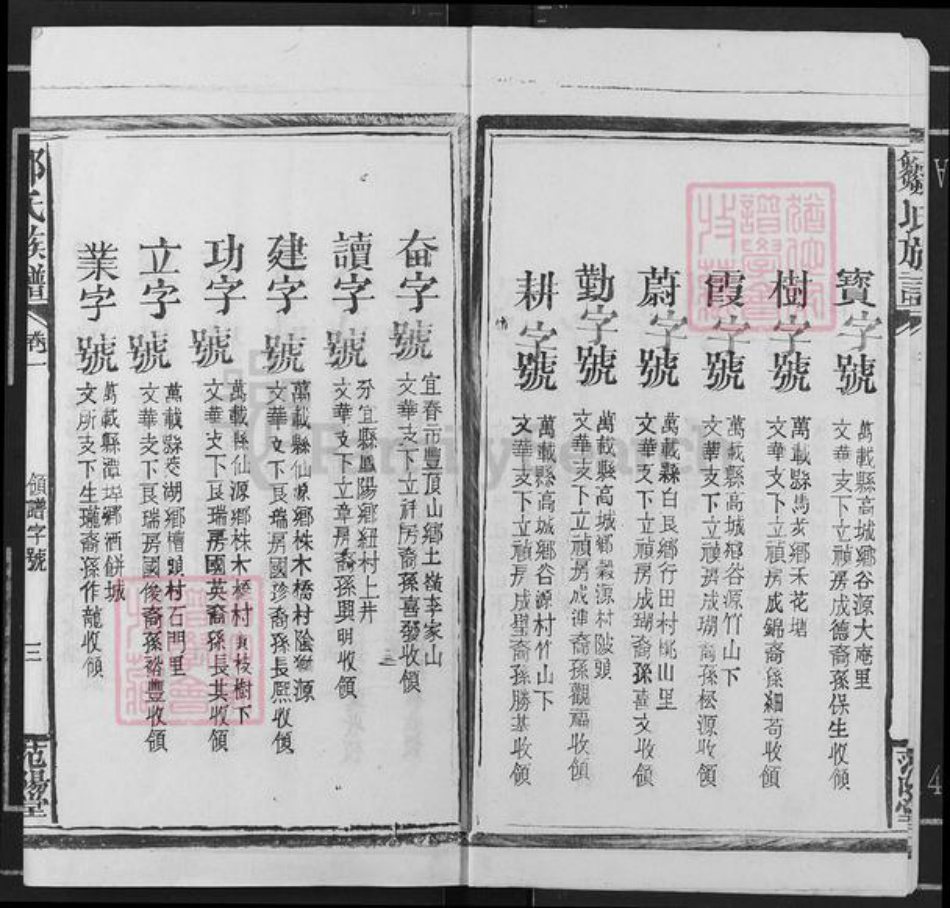 鄒氏族譜
寶字號
萬載縣高城鄉谷源大庵里
文華支下立禎房成德裔孫保生收領
樹字號
萬載縣馬步鄉禾花塘
文華支下立禎房成錦裔孫細苟收領
霞字號
萬載縣高城鄉谷源竹山下
文華支下立禎房成瑚裔孫松源收領
蔚字號
萬載縣白良鄉行田村桃山里
文華支下立禎房成瑚裔孫喜文收領
勤字號
萬載縣高城鄉穀源村陂頭
文華支下立禎房成 裔孫觀福收領
耕字號
萬載縣高城鄉谷源村竹山下
文華支下立禎房成璧裔孫勝基收領
奋字號
宜春市豐頂山鄉土嶺李家山
文華支下立 房裔孫喜發收領
讀字號
分宜縣鳳陽鄉紐村上井
文華支下立章房裔孫興明收領
建字號
萬載縣仙源鄉株木橋村陰 源
文華支下良瑞房國珍裔孫長熙收領
功字號
萬載縣仙源鄉株木橋村 枝樹下
文華支下良瑞房國英裔孫長其收領
立字號
萬載縣茭湖鄉槽頭村石門里
文華支下良瑞房國俊裔孫裕豐收領
業字號
萬載縣潭埠鄉酒餅城
文所支下生瓏裔孫作龍收領
鄒氏族譜
卷一
領譜字號
三
范陽堂
范陽堂